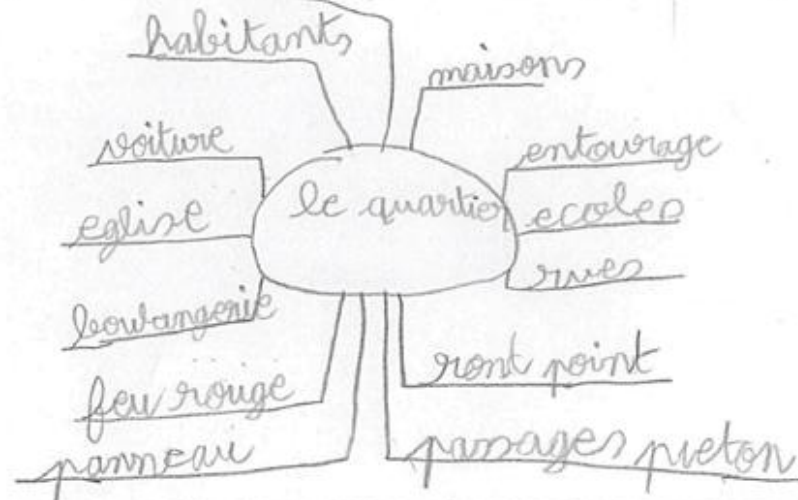 habitants
maisons
voiture
entourage
le quartier
eglise
ecoles
rues
boulangerie
ront point
feu rouge
panneau
passages pieton